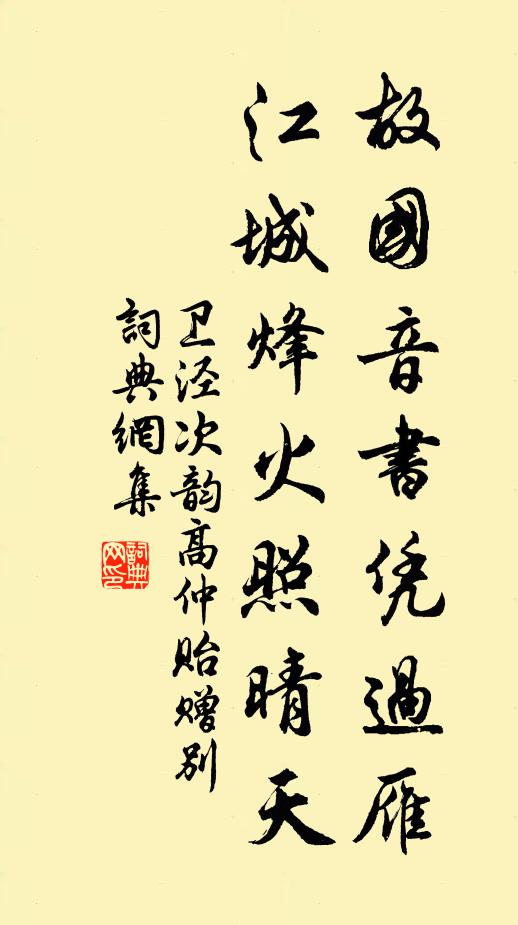 故國音書凭過雁
江城烽火照晴天
卫泾次韵高仲贻赠别
詞典網集
詞典网印